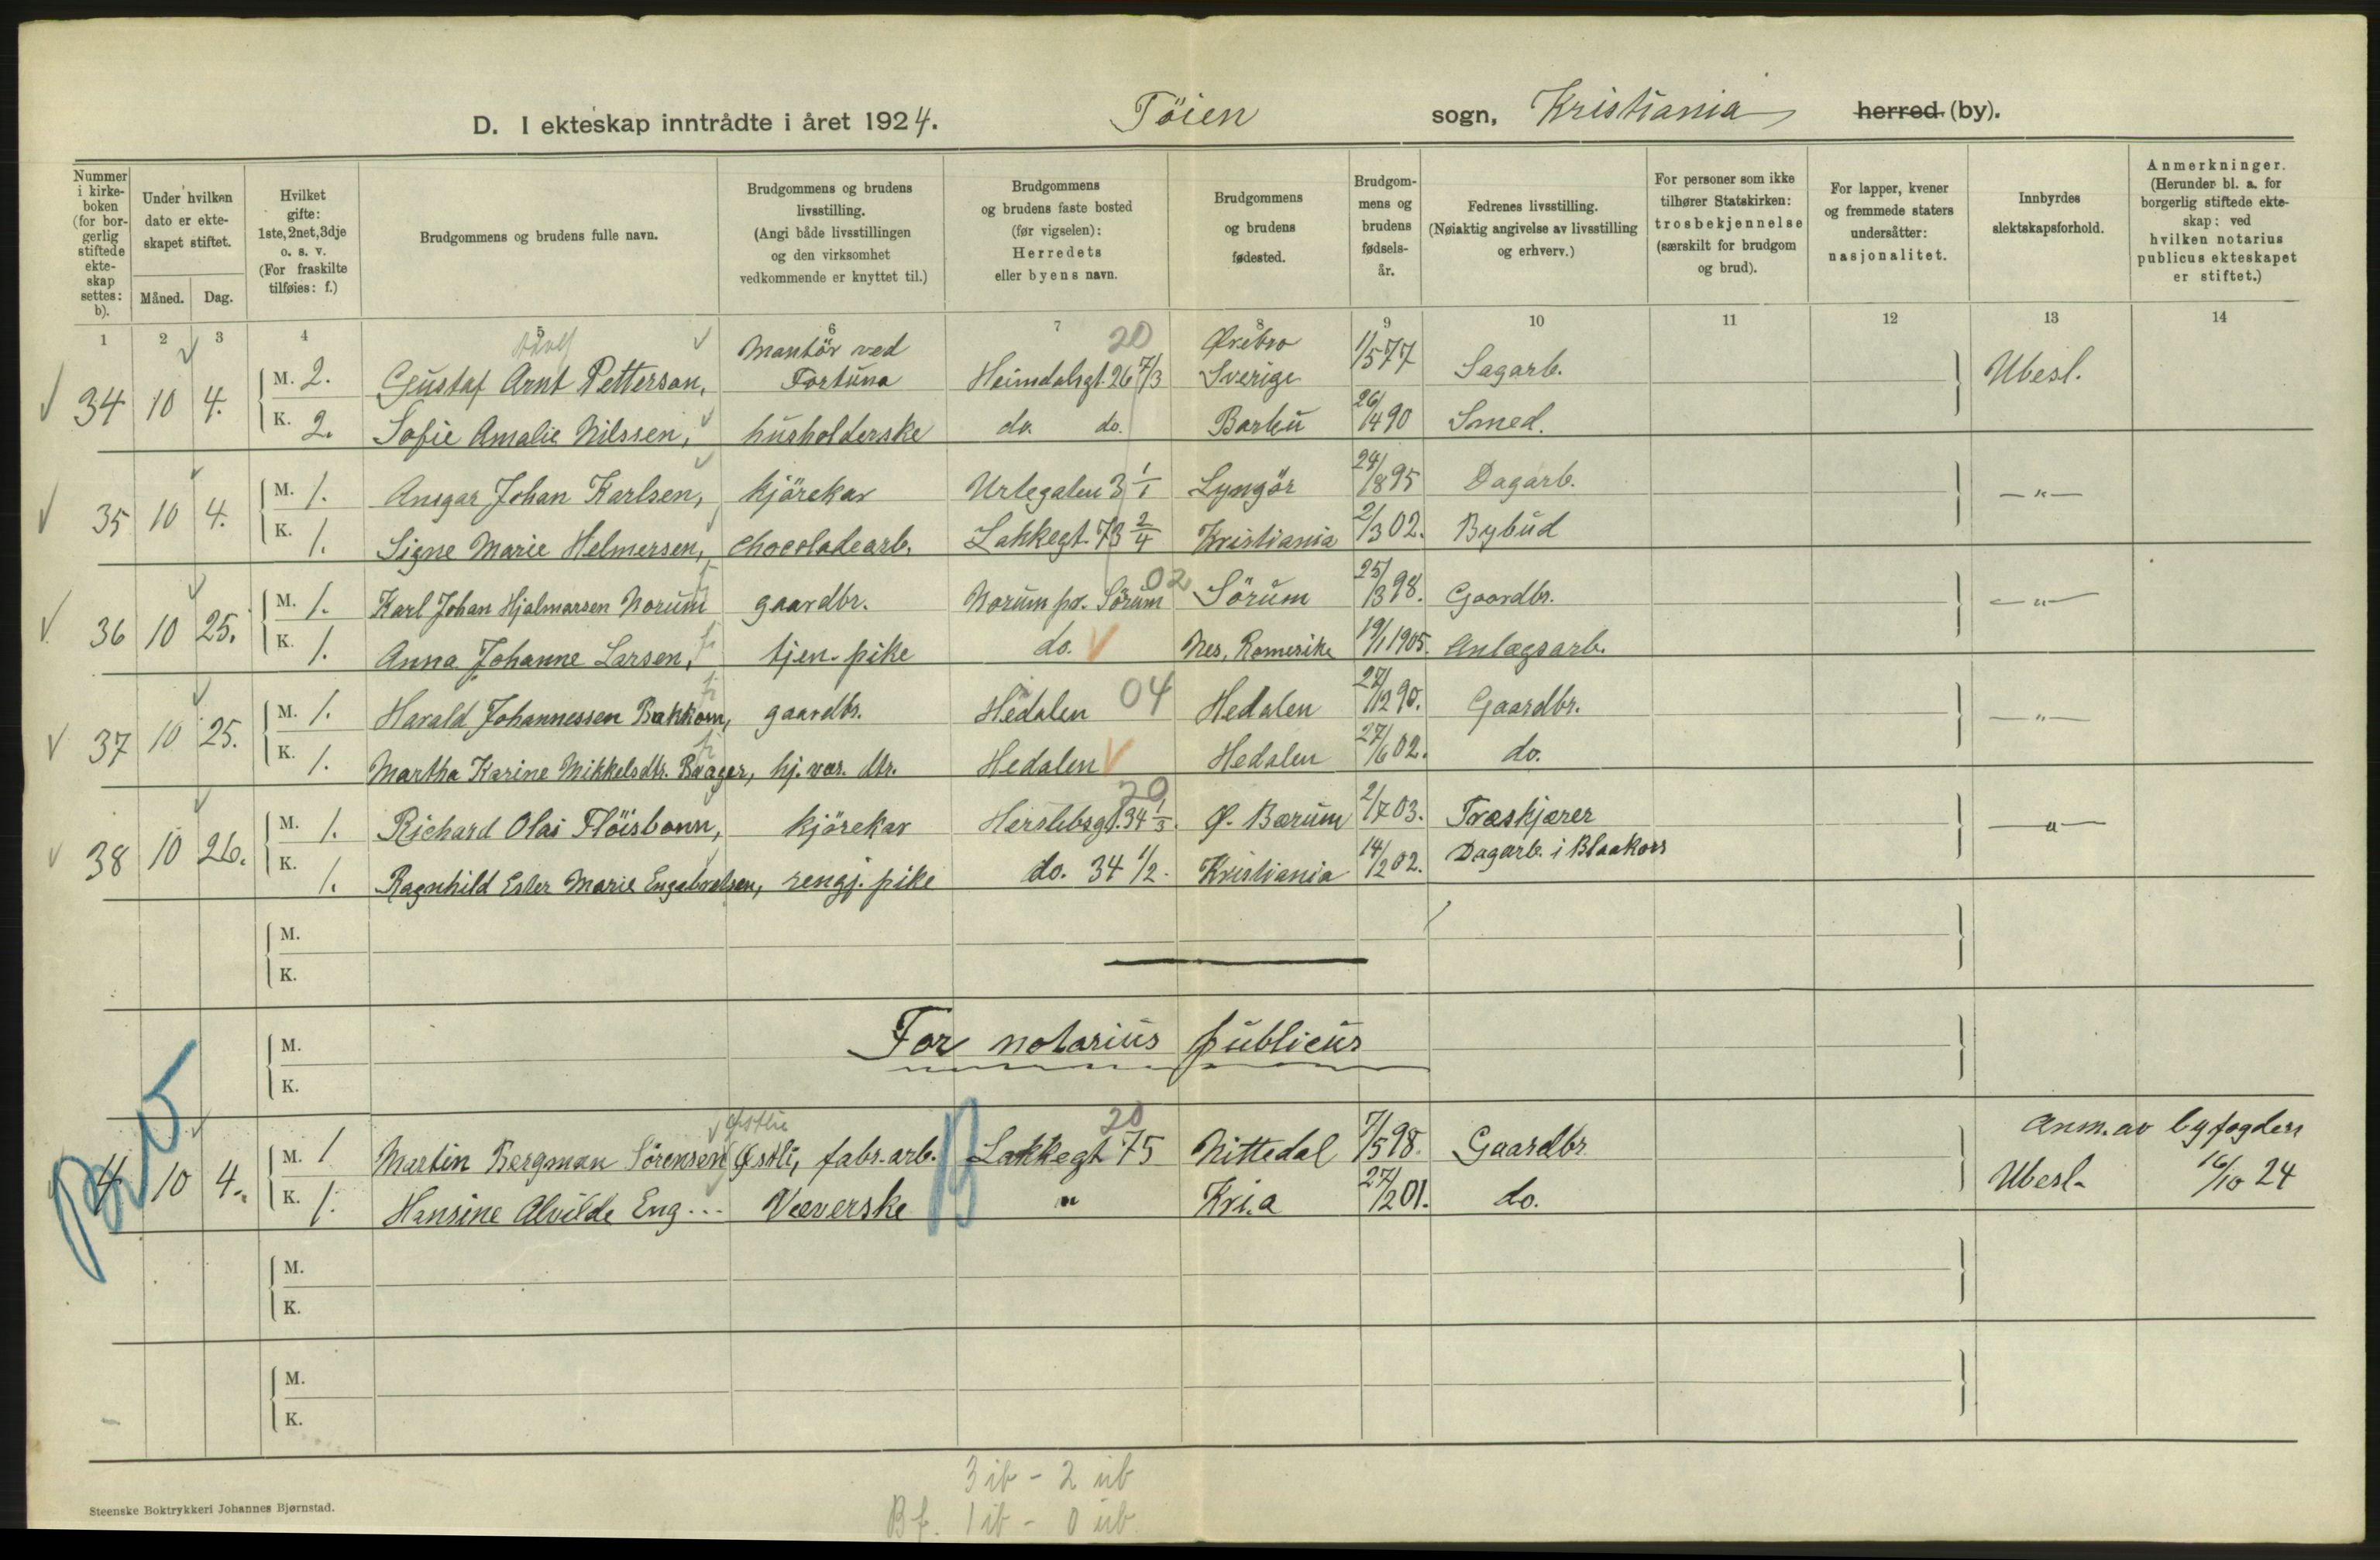 D. I ekteskap inntrådte i året 1924. Töien sogn, Kristiania herred (by).
Nummer i kirkeboken (for borgerlig stiftede ekteskap settes: b).
Under hvilken dato er ekteskapet stiftet.
Måned. Dag.
Hvilket gifte: 1ste, 2net, 3dje o. s. v. (For fraskilte tilføies: f.)
Brudgommens og brudens fulle navn.
Brudgommens og brudens livsstilling. (Angi både livsstillingen og den virksomhet vedkommende er knyttet til.)
Brudgommens og brudens faste bosted (før vigselen): Herredets eller byens navn.
Brudgommens og brudens fødested.
Brudgommens og brudens fødselsår.
Fedrenes livsstilling. (Nøiaktig angivelse av livsstilling og erhverv.)
For personer som ikke tilhører Statskirken: trosbekjennelse (særskilt for brudgom og brud).
For lapper, kvener og fremmede staters undersåtter: nasjonalitet.
Innbyrdes slektskapsforhold.
Anmerkninger. (Herunder bl. a. for borgerlig stiftede ekteskap: ved hvilken notarius publicus ekteskapet er stiftet.)
1 2 3 4 5 6 7 8 9 10 11 12 13 14
34 10 4. M. 2. Gustaf Arnt Petterson, Montör ved Fortuna Heimdalsgt. 26 7/3 20 Örebro Sverige 1/5 77 Sagarb. Ubesl.
K. 2. Sofie Amalie Nilssen, husholderske do. do. Barbu 26/4 90 Smed.
35 10 4. M. 1. Ansgar Johan Karlsen, kjörekar Urtegaten 3 1/1 Lyngör 24/8 95 Dagarb. — " —
K. 1. Signe Marie Helmersen, chocoladearb. Lakkegt. 73 2/4 Kristiania 2/3 02. Bybud
36 10 25. M. 1. Karl Johan Hjalmarsen Norum gaardbr. Norum pr. Sörum 02 Sörum 25/3 98. Gaardbr. — " —
K. 1. Anna Johanne Larsen, tjen. pike do. Nes, Romerike 19/1 1905. Anlægsarb.
37 10 25. M. 1. Harald Johannessen Bakkom, gaardbr. Hedalen 04 Hedalen 27/12 90. Gaardbr. — " —
K. 1. Martha Karine Mikkelsdtr. Brager, hj. vær. dtr. Hedalen Hedalen 27/6 02. do.
38 10 26. M. 1. Richard Olai Flöisbonn, kjörekar Herslebsgt. 34 1/3. 20 Ø. Bærum 2/7 03. Træskjærer — " —
K. 1. Ragnhild Ester Marie Engebretsen, rengj. pike do. 34 1/2. Kristiania 14/2 02. Dagarb. i Blaakors
M.
K.
M. For notarius publicus
K.
4 10 4. M. 1 Martin Bergman Sörensen Østli, fabr. arb. B Lakkegt 75 20 Nittedal 7/5 98. Gaardbr Anm. av byfogden
K. 1. Hansine Alvilde Eng... Væverske " Kri.a 27/2 01. do. Ubesl. 16/10 24
M.
K.
M.
K.
3 ib - 2 ub
Bf. 1 ib - 0 ub
Steenske Boktrykkeri Johannes Bjørnstad.